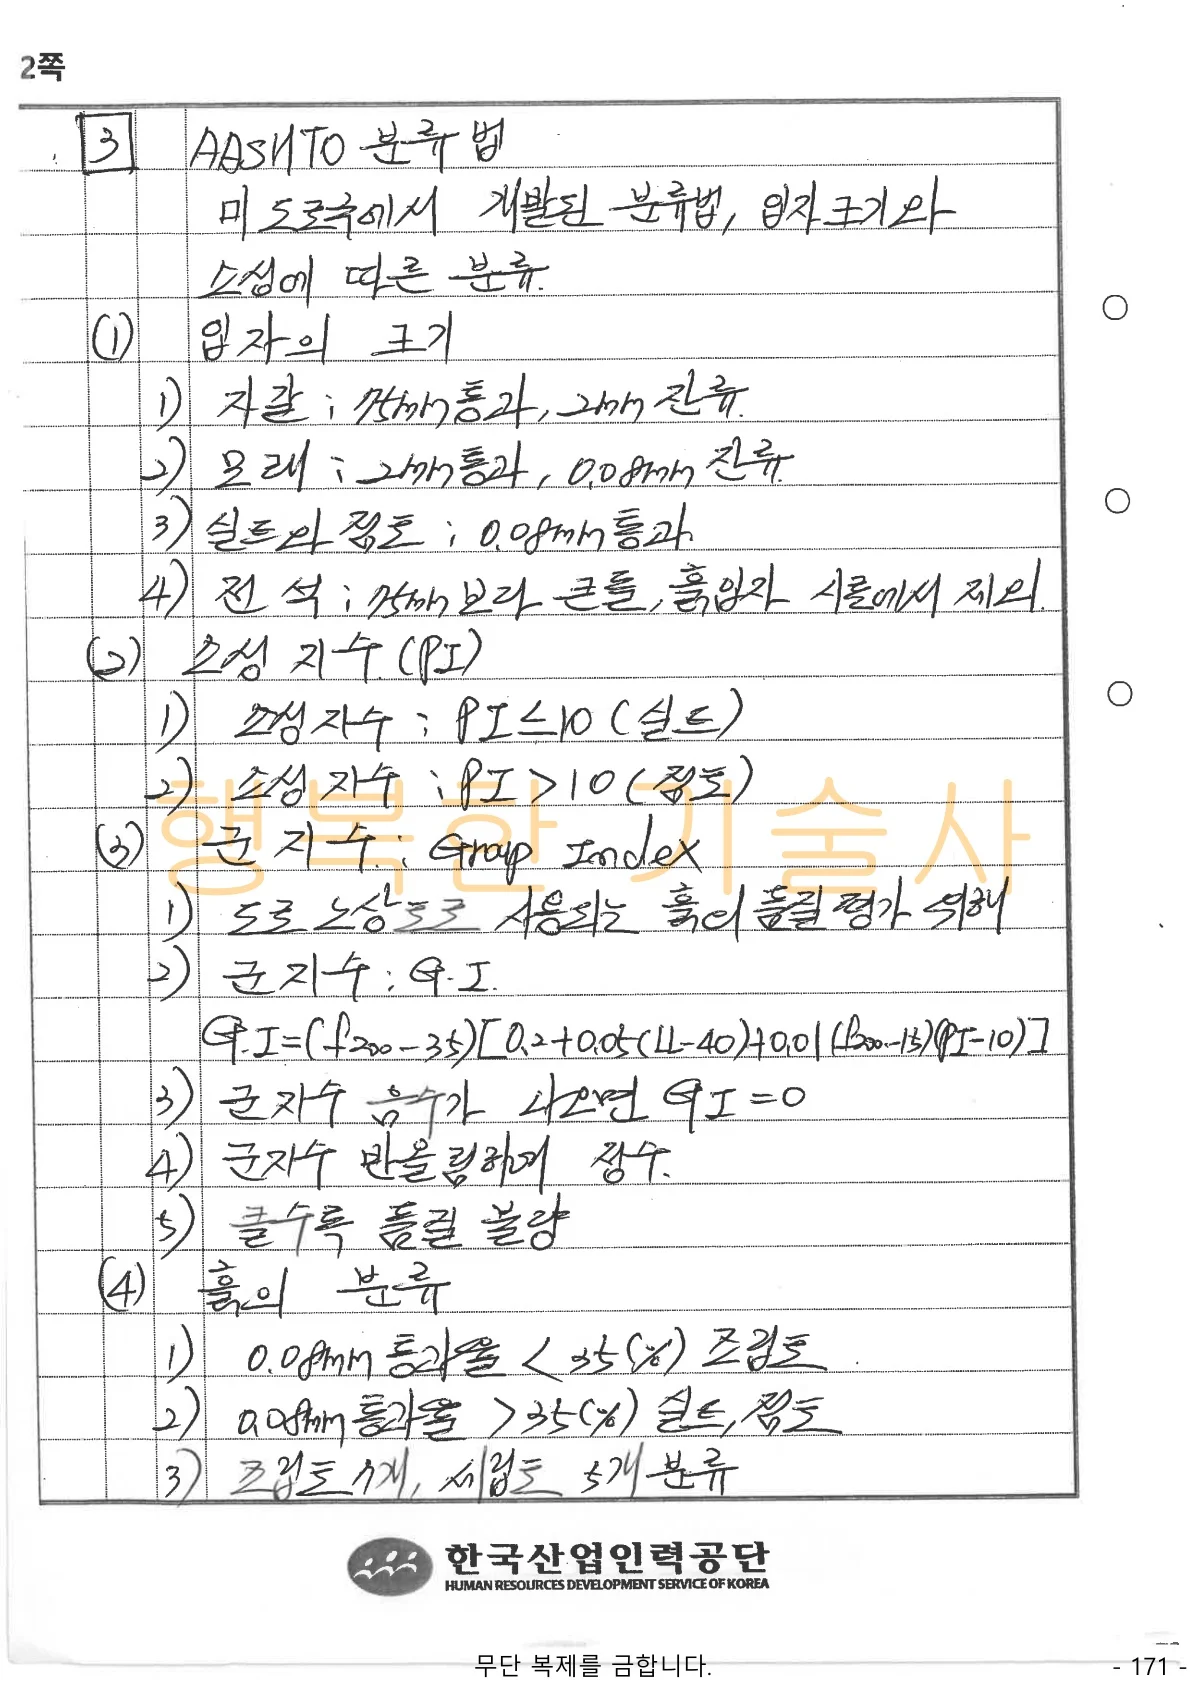 2쪽
3 AASHTO 분류법
미 도로국에서 개발된 분류법, 입자크기와
소성에 따른 분류.
(1) 입자의 크기
1) 자갈 : 75mm통과, 2mm 잔류.
2) 모래 : 2mm통과, 0.08mm 잔류.
3) 실트와 점토 : 0.08mm통과.
4) 전석 : 75mm보다 큰돌, 흙입자 시료에서 제외.
(2) 소성 지수 (PI)
1) 소성지수 : PI≤10 (실트)
2) 소성지수 : PI>10 (점토)
(3) 군 지수 : Group Index
1) 도로 노상토로 사용되는 흙의 품질평가 위해
2) 군지수 : G.I.
G.I=(f200-35)[0.2+0.05(LL-40)+0.01(f200-15)(PI-10)]
3) 군지수 음수가 나오면 GI=0
4) 군지수 반올림하여 정수.
5) 클수록 품질 불량
(4) 흙의 분류
1) 0.08mm통과율 < 35(%) 조립토
2) 0.08mm통과율 > 35(%) 실트, 점토
3) 조립토 7개, 세립토 5개 분류
행복한 기술사
한국산업인력공단
HUMAN RESOURCES DEVELOPMENT SERVICE OF KOREA
무단 복제를 금합니다.
- 171 -